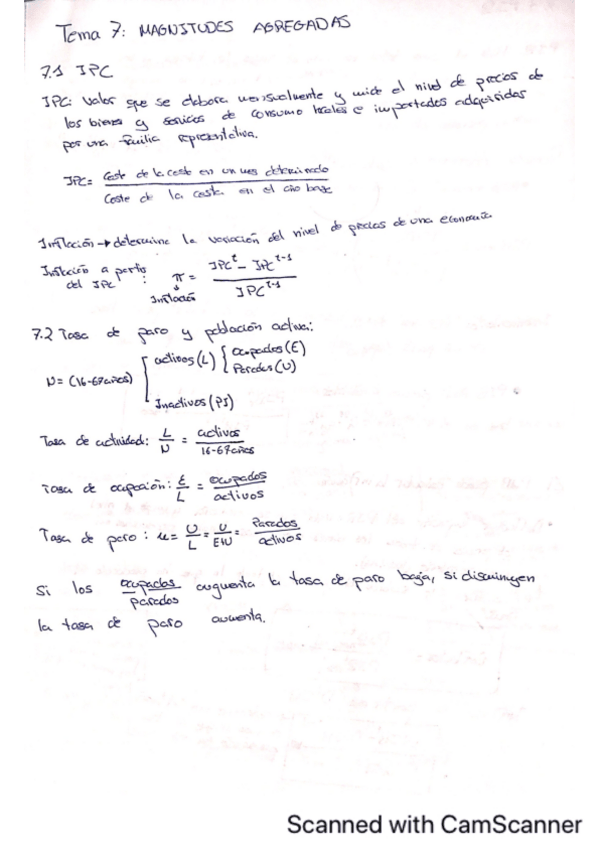 Tema 7: MAGNITUDES AGREGADAS
7.1 IPC
IPC: Valor que se elabora mensualmente y mide el nivel de precios de
los bienes y servicios de consumo locales e importados adquiridos
por una familia representativa.
IPC = Coste de la cesta en un mes determinado / Coste de la cesta en el año base
Inflación → determina la variación del nivel de precios de una economía
Inflación a partir del IPC : π = IPC^t - IPC^t-1 / IPC^t-1
↓
Inflación
7.2 Tasa de paro y población activa:
N = (16-67 años) { activos (L) { Ocupados (E)
Parados (U)
Inactivos (PI)
Tasa de actividad: L/N = activos / 16-67 años
Tasa de ocupación: E/L = ocupados / activos
Tasa de paro : u = U/L = U/E+U = Parados / activos
Si los ocupados / parados augmenta la tasa de paro baja, si disminuyen
la tasa de paro aumenta.
Scanned with CamScanner